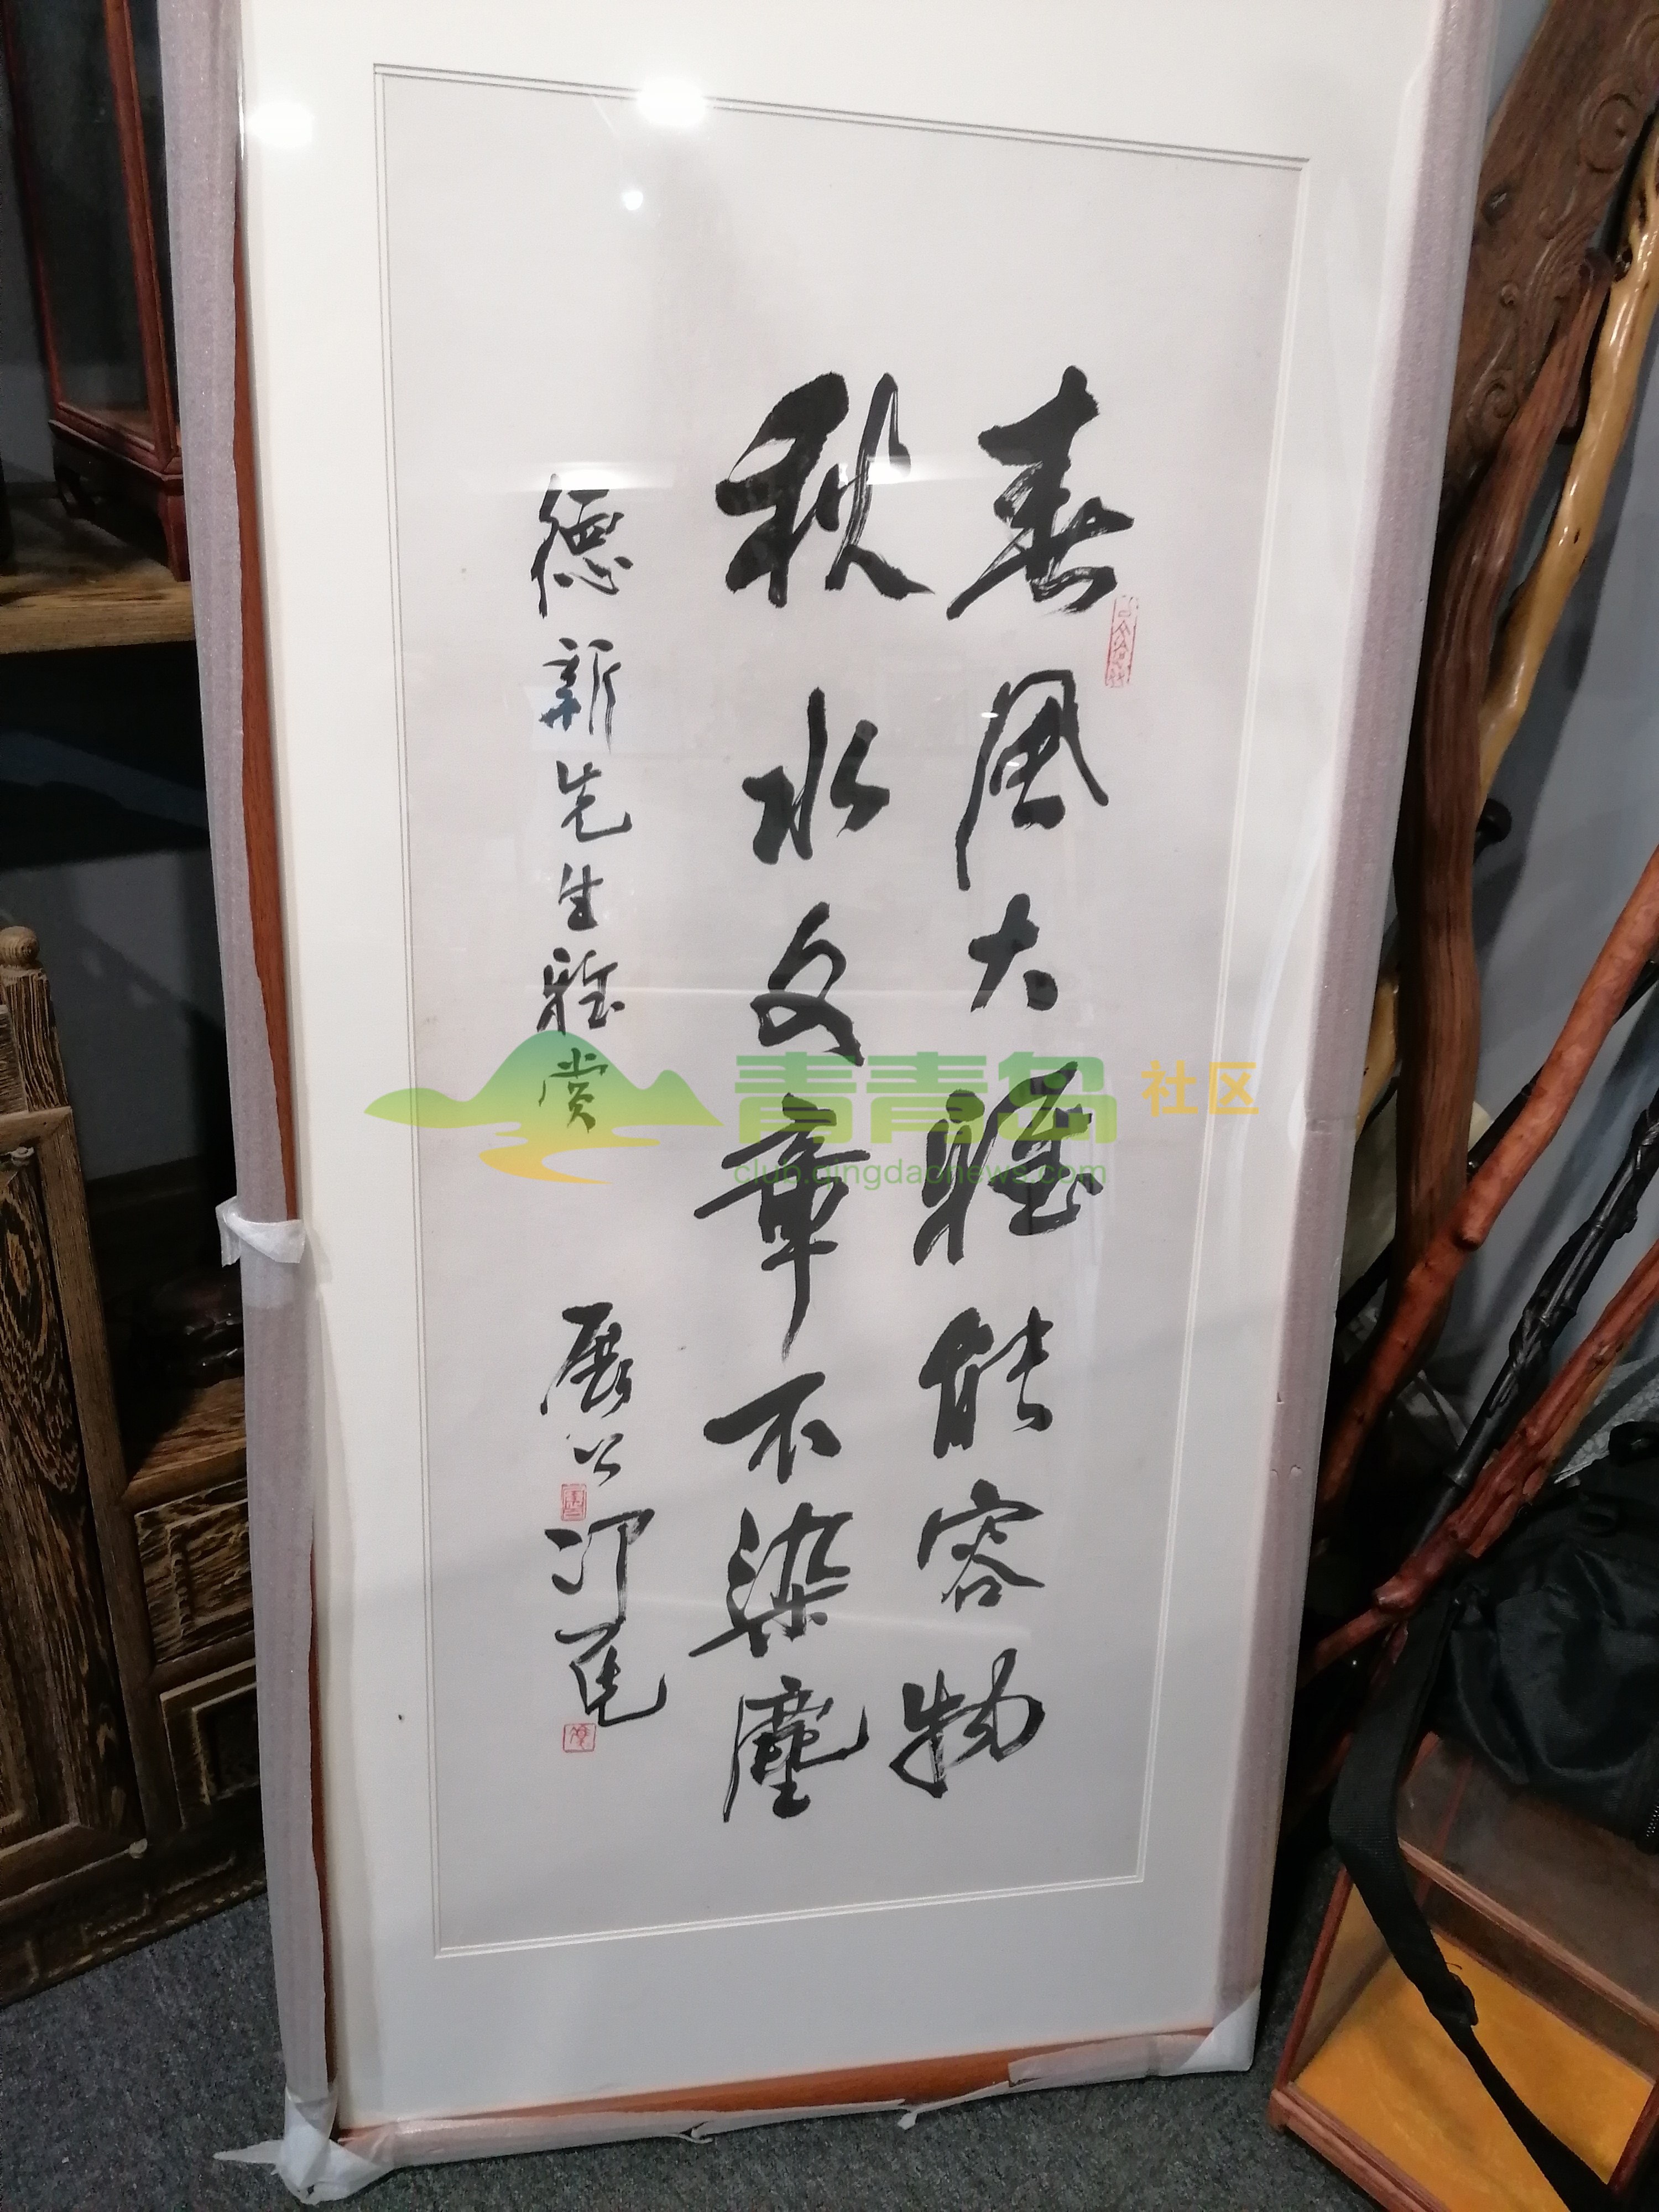 春风大雅能容物
秋水文章不染尘
德新先生雅赏
展公
青青岛 社区
club.qingdaonews.com